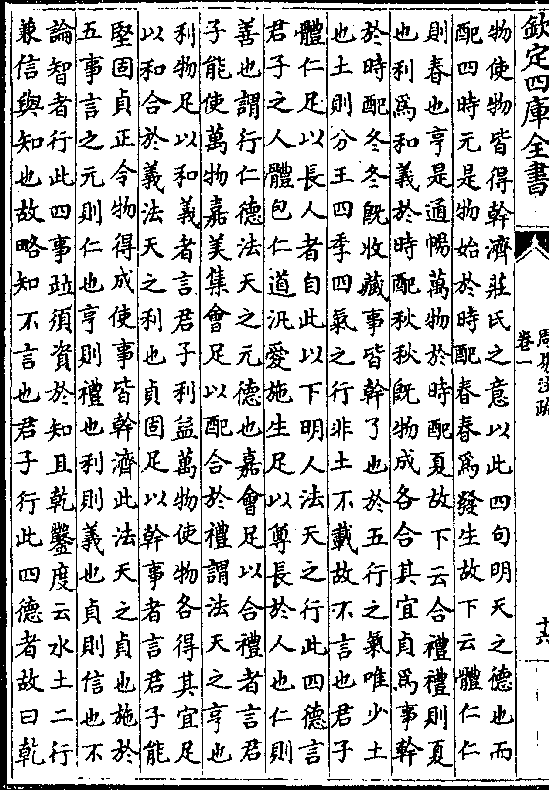 欽定四庫全書
周易注疏
卷一
十六
物使物皆得幹濟莊氏之意以此四句明天之德也而
配四時元是物始於時配春春為發生故下云體仁仁
則春也亨是通暢萬物於時配夏故下云合禮禮則夏
也利為和義於時配秋秋既物成各合其宜貞為事幹
於時配冬冬既收藏事皆幹了也於五行之氣唯少土
也土則分王四季四氣之行非土不載故不言也君子
體仁足以長人者自此以下明人法天之行此四德言
君子之人體包仁道汎愛施生足以尊長於人也仁則
善也謂行仁德法天之元德也嘉會足以合禮者言君
子能使萬物嘉美集會足以配合於禮謂法天之亨也
利物足以和義者言君子利益萬物使物各得其宜足
以和合於義法天之利也貞固足以幹事者言君子能
堅固貞正令物得成使事皆幹濟此法天之貞也施於
五事言之元則仁也亨則禮也利則義也貞則信也不
論智者行此四事並須資於知且乾鑿度云水土二行
兼信與知也故略知不言也君子行此四德者故曰乾